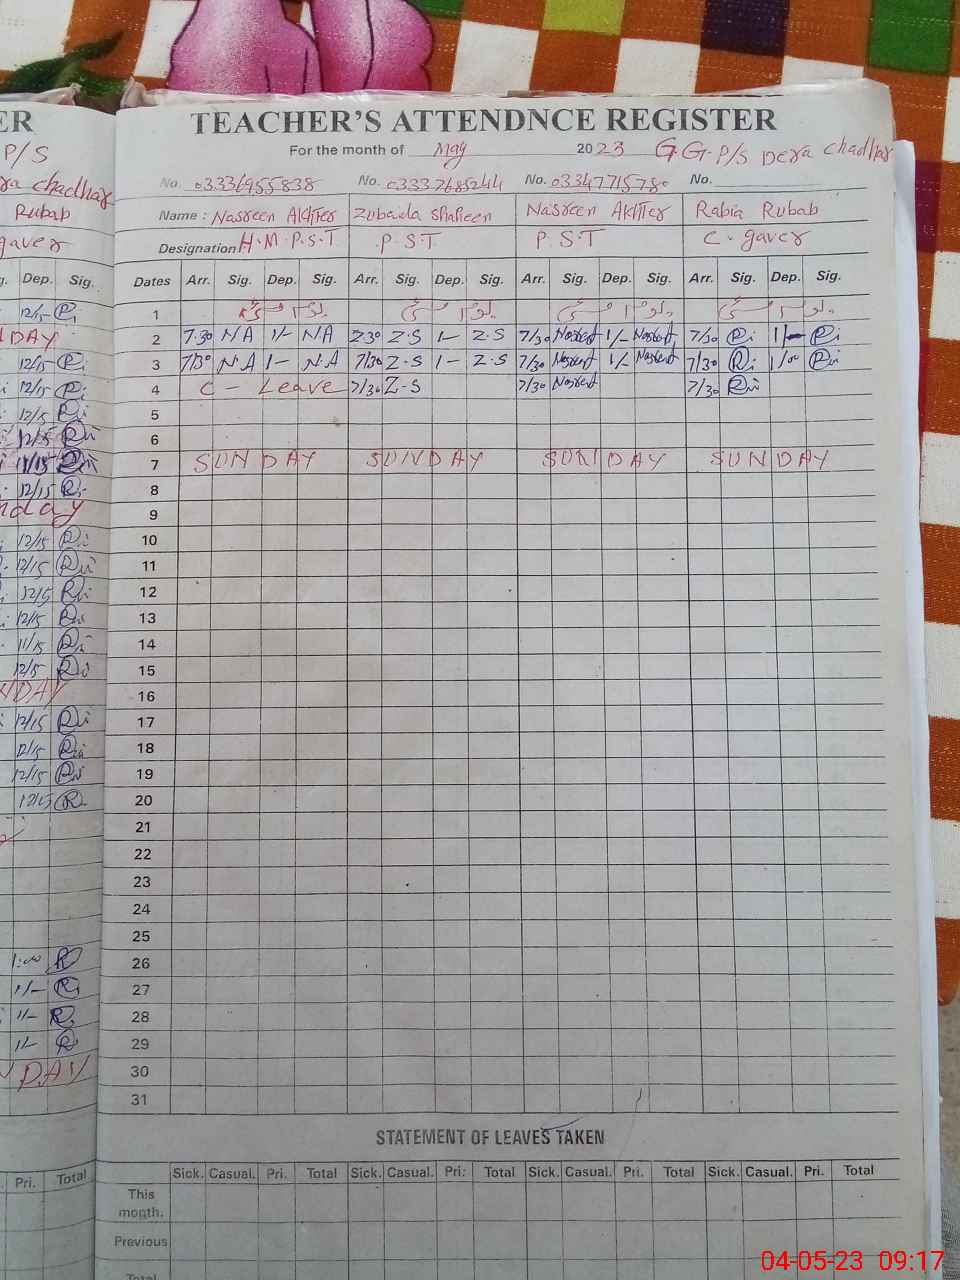 ER
TEACHER'S ATTENDNCE REGISTER
P/S
For the month of May 2023 G.G.P/S Dera chadhar
ra chadhar
No. 03336955838 No. 03337685244 No. 03347715780 No.
Rubab
Name : Nasreen Akhter Zubaida Shaheen Nasreen Akhter Rabia Rubab
gaver
Designation H.M.P.S.T P.S.T P.S.T C.gaver
g. Dep. Sig. Dates Arr. Sig. Dep. Sig. Arr. Sig. Dep. Sig. Arr. Sig. Dep. Sig. Arr. Sig. Dep. Sig.
12/15 1
DAY 2 7.30 N A 1/- N A 7.30 Z.S 1- Z.S 7/30 1/- 7/30 Ri 1/- Ri
12/15 3 7/30 N.A 1- N.A 7/30 Z.S 1- Z.S 7/30 1/- 7/30 Ri 1/00 Ri
12/15 4 C - Leave 7/30 Z-S 7/30 7/30 Ri
12/15 5
12/15 6
11/15 7 SUNDAY SUNDAY SUNDAY SUNDAY
12/15 8
nday 9
12/15 10
12/15 11
12/15 12
12/15 13
11/15 14
12/15 15
NDAY 16
12/15 17
12/15 18
12/15 19
12/15 20
21
22
23
24
25
1:00 26
1/- 27
1/- 28
1/- 29
DAY 30
31
STATEMENT OF LEAVES TAKEN
Pri. Total Sick. Casual. Pri. Total Sick. Casual. Pri. Total Sick. Casual. Pri. Total Sick. Casual. Pri. Total
This
month.
Previous
Total
04-05-23 09:17